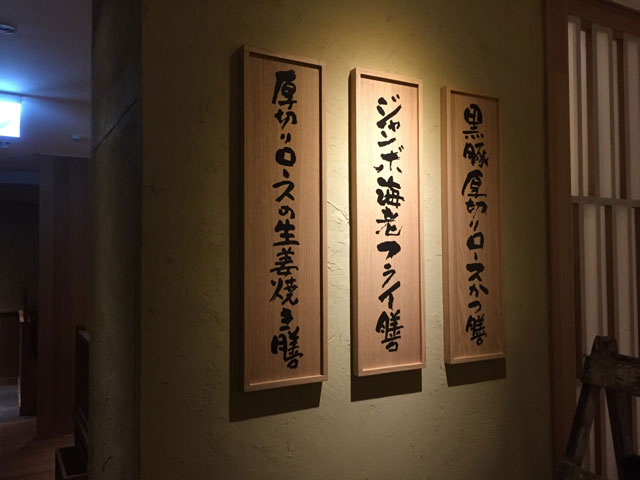 黒豚厚切りロースかつ膳
ジャンボ海老フライ膳
厚切りロースの生姜焼き膳